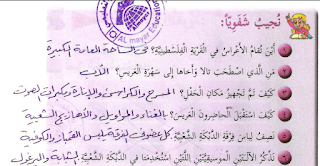 نُجيبُ شَفَوِيًّا:
ALmayar
١ أَيْنَ تُقامُ الأَعْراسُ في القَرْيَةِ الفِلَسْطينِيَّةِ؟ في الساحة العامة الكبيرة
٢ مَنِ الَّذي اصْطَحَبَ تالا وأَخاها إلى سَهْرَةِ العَريسِ؟ الأب
٣ كَيْفَ تَمَّ تَجْهيزُ مَكانِ الحَفْلِ؟ المسرح والكراسي والإنارة ومكبرات الصوت
٤ كَيْفَ اسْتَقْبَلَ الحاضِرونَ العَريسَ؟ بالغناء والمواويل والأهازيج الشعبية
٥ نَصِفُ لِباسَ فِرْقَةِ الدَّبْكَةِ الشَّعْبِيَّةِ. والكوفية
٦ نَذْكُرُ الآلَتَيْنِ الموسيقِيَّتَيْنِ اللَّتَيْنِ اسْتُخْدِمَتا في الدَّبْكَةِ الشَّعْبِيَّةِ. الشبابة واليرغول